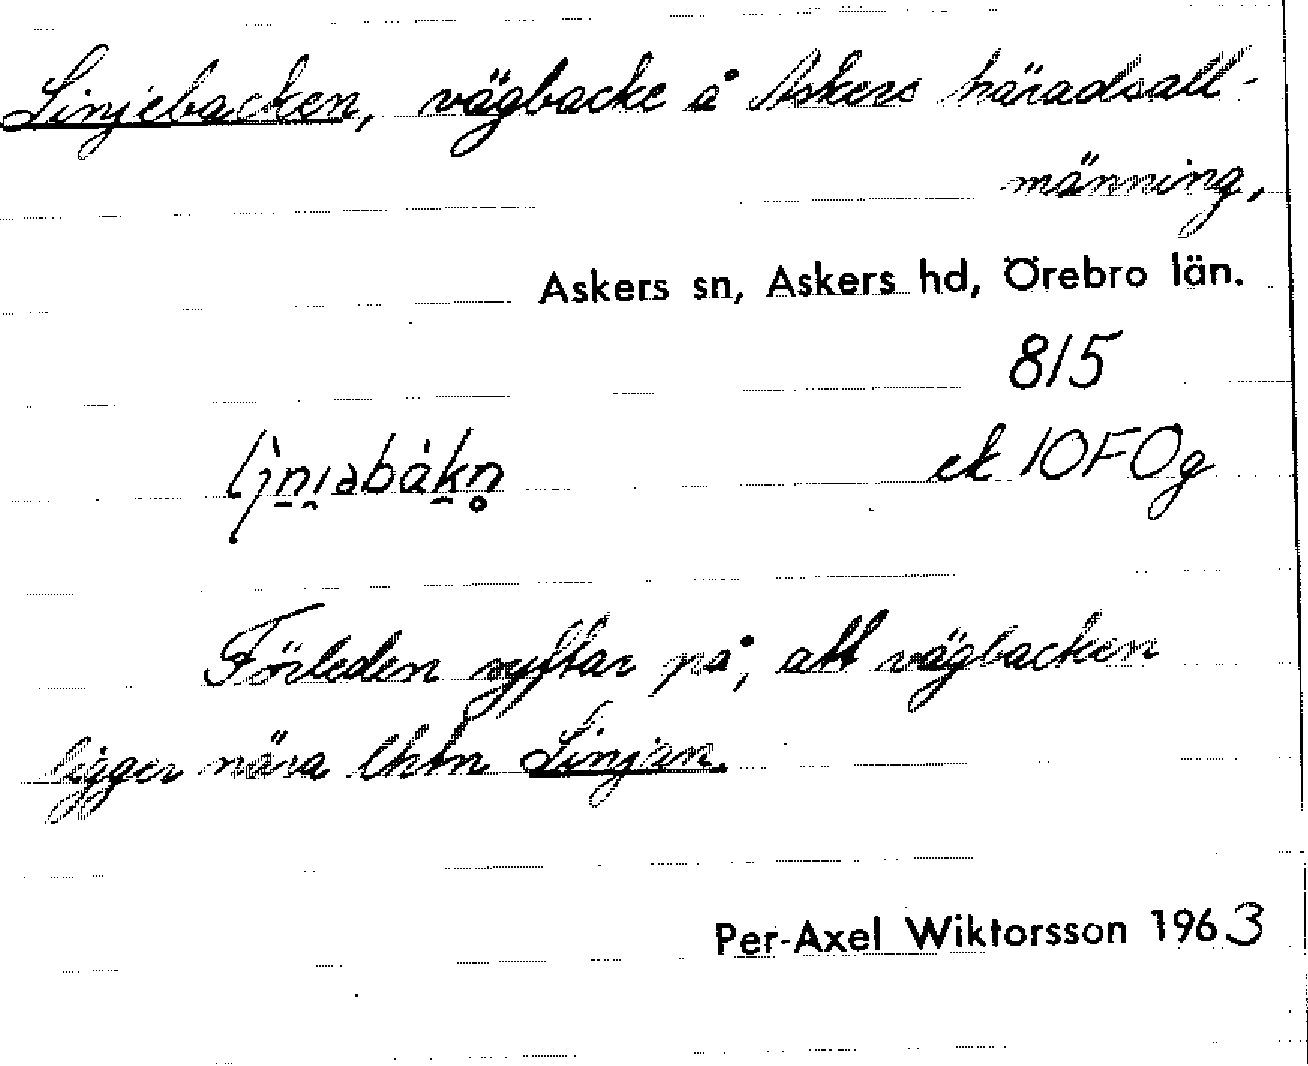 Linjebacken, vägbacke å Askers häradsall-
männing,
Askers sn, Askers hd, Örebro län.
815
ek 10F0g
Förleden syftar på, att vägbacken
ligger nära
Linjan.
Per-Axel Wiktorsson 1963